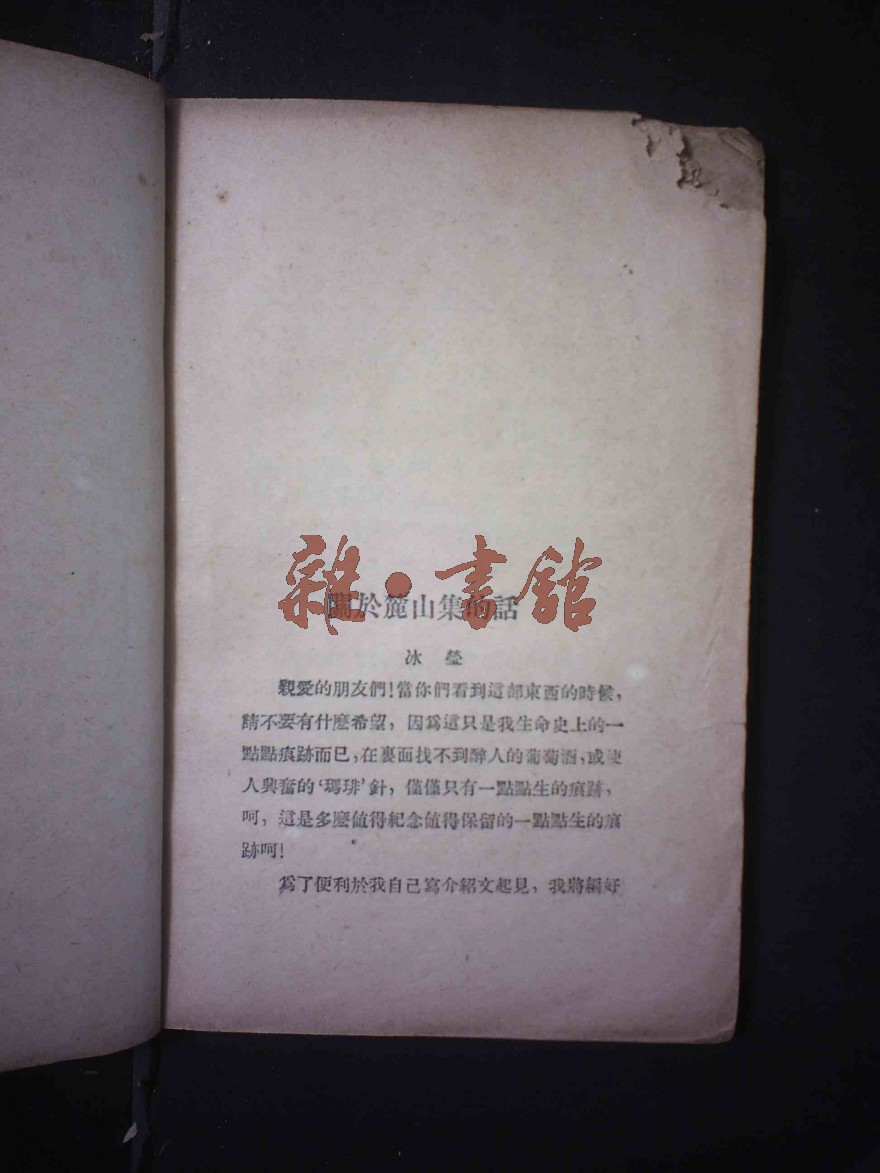 雜·書館
關於麓山集的話
冰瑩
親愛的朋友們！當你們看到這部東西的時候，
請不要有什麽希望，因爲這只是我生命史上的一
點點痕跡而已，在裏面找不到醉人的葡萄酒，或使
人興奮的‘瑪琲’針，僅僅只有一點點生的痕跡，
呵，這是多麽值得紀念值得保留的一點點生的痕
跡呵！
爲了便利於我自己寫介紹文起見，我將編好